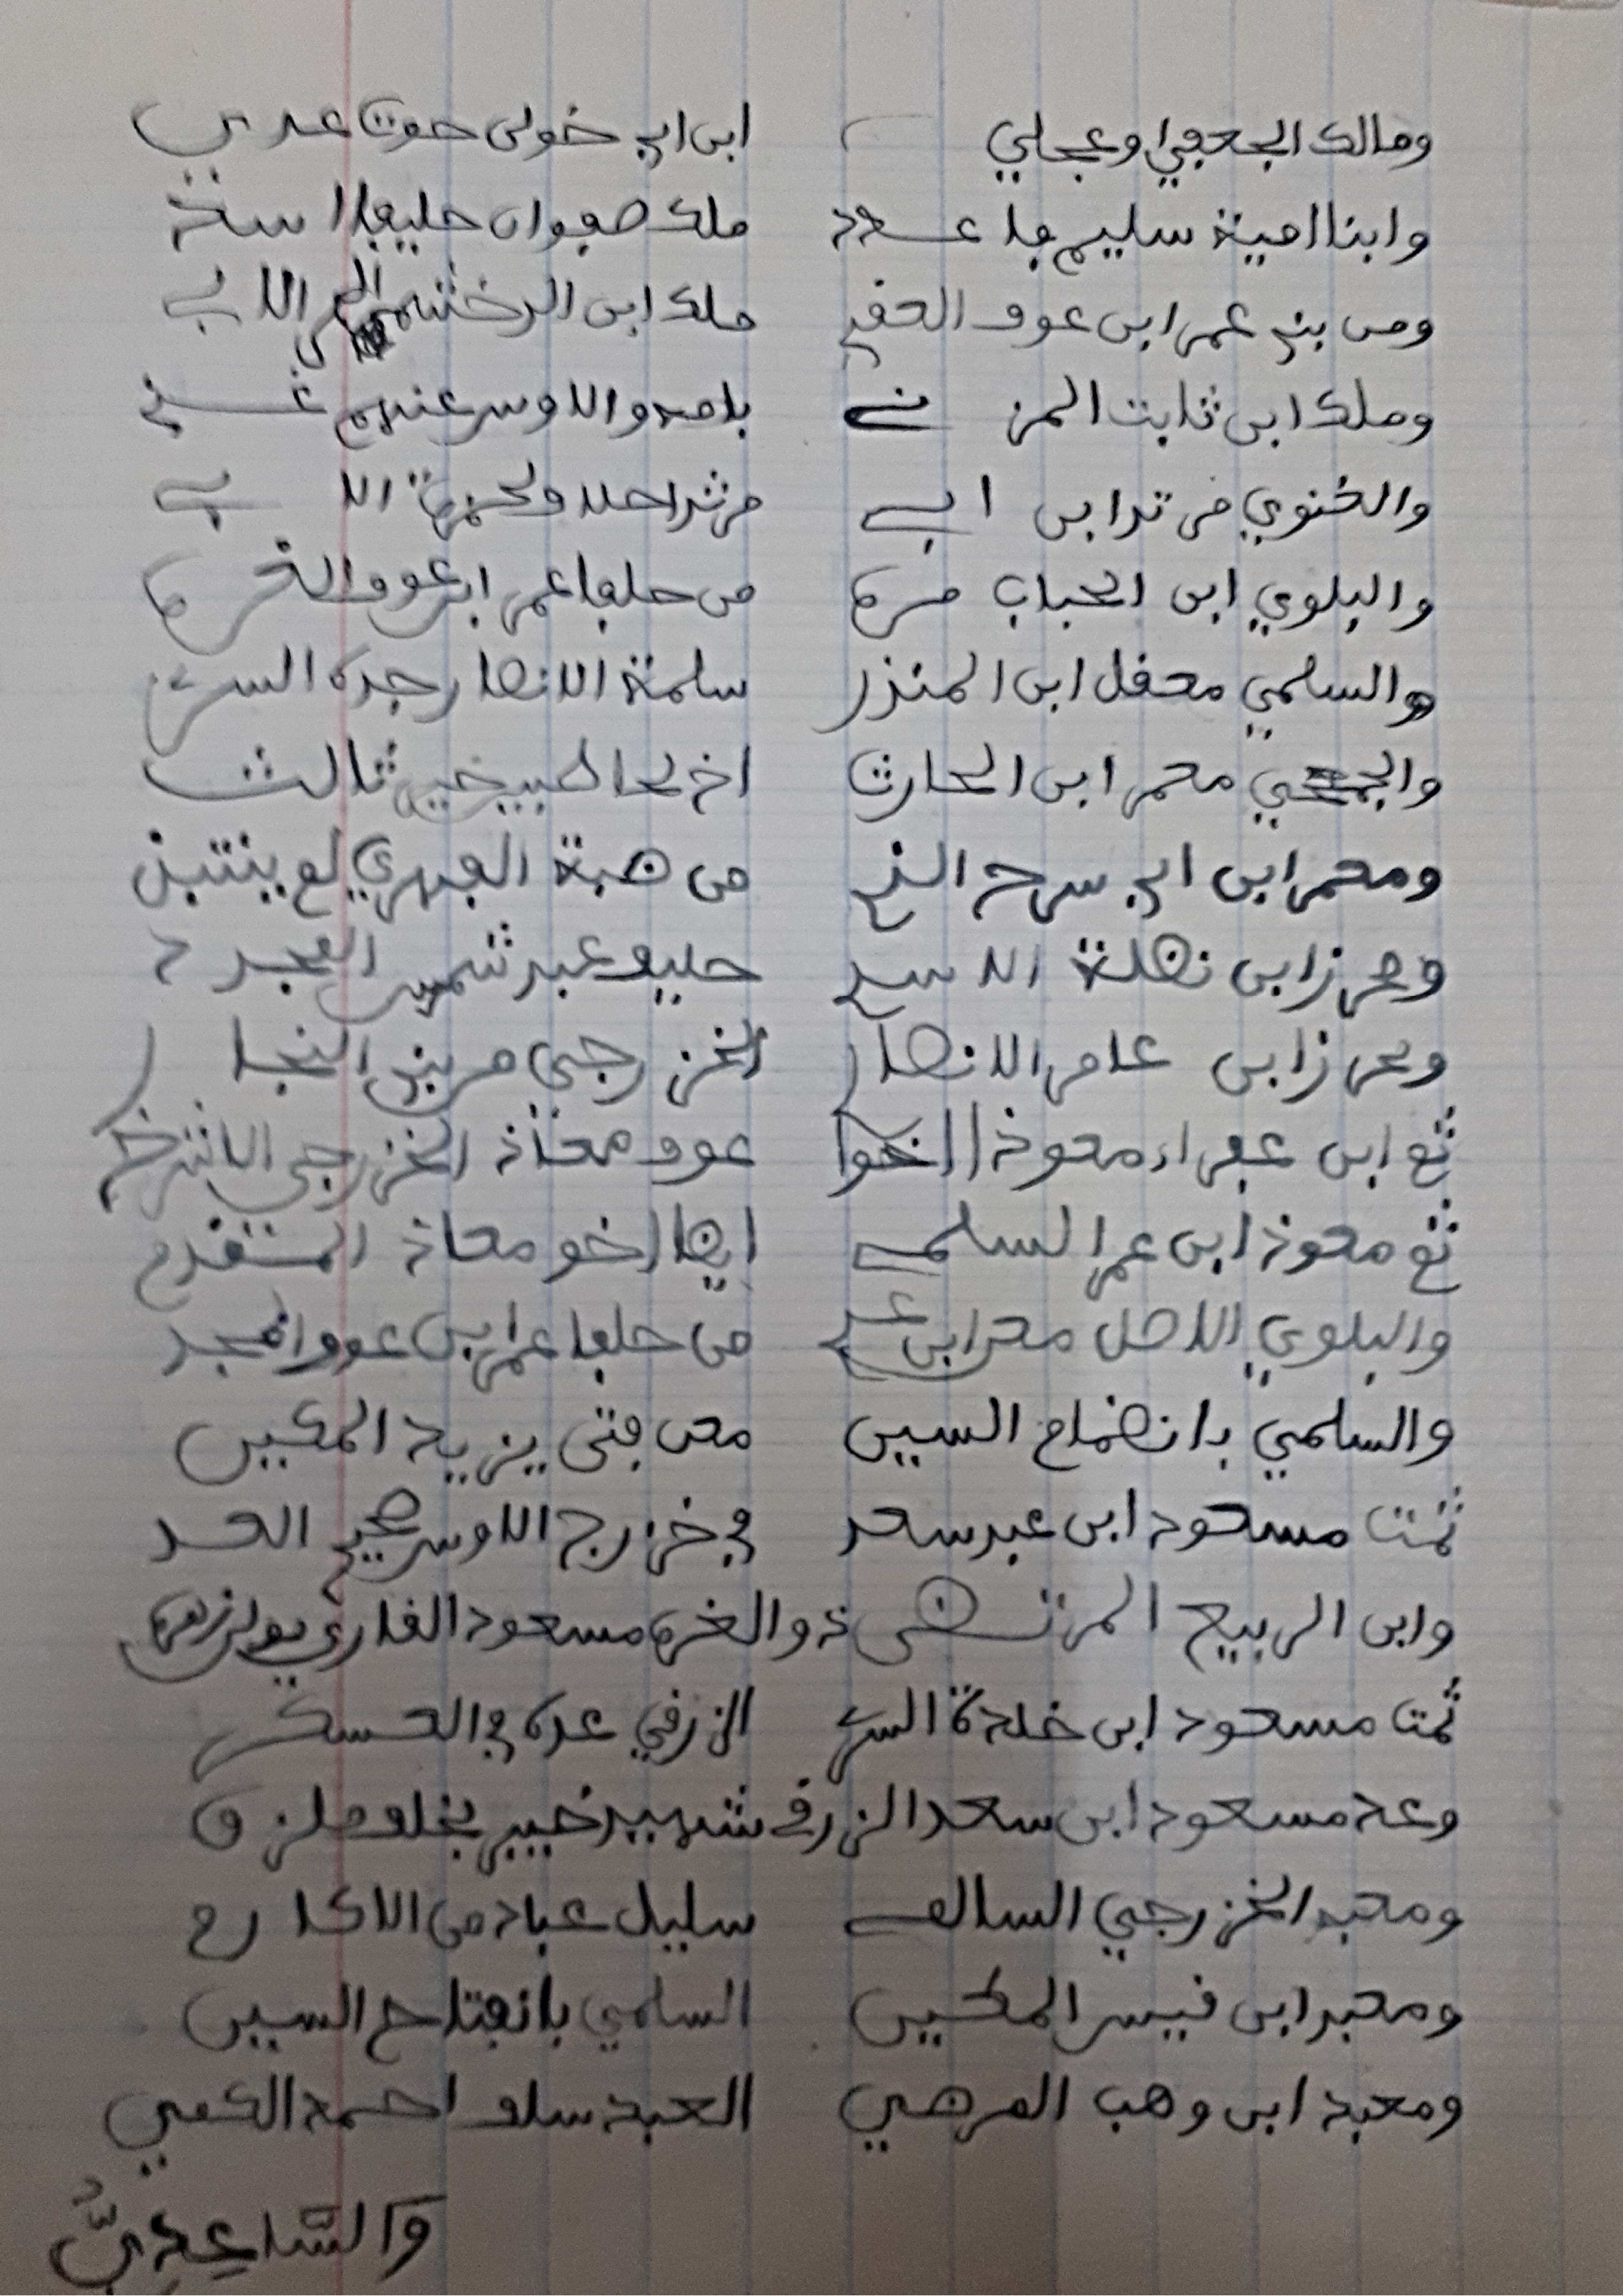 ومالك الجعفي وعجلي ابن ابي خولى حوت عدي
وابنا امية سليم فاعدد ملك صفوان حليفا اسد
ومن بني عمر ابن عوف ملك ابن الدخشم
وملك ابن ثابت المزني
والغنوي مرثد ابن ابي مرثد احلاف لحمزة الابي
والبلوي ابن الحباب مره من حلفا عمر ابن عوف الغره
والسلمي معقل ابن المنذر سلمة الانصار جده السري
والجمحي معمر ابن الحارث اخ لحاطب خير ثالث
ومعمر ابن ابي سرح الذي من ضبة الفهري لم ينتبذ
ومحرز ابن نضلة الاسدي حليف عبد شمس
ومحرز ابن عامر الانصار الخزرجي من بني النجار
ثم ابن عفراء معوذ اخوا عوف معاذ الخزرجي
ثم معوذ ابن عمر السلمي ايضا اخو معاذ المتقدم
والبلوي الاصل معن ابن عدي من حلفا عمر ابن عوف
والسلمي بانضمام السين معن فتى يزيد المكين
ثمت مسعود ابن عبد سعد في خزرج الاوس صحيح العد
وابن الربيع المرتضى ذو الغره مسعود القاري
ثمت مسعود ابن خلدة السري الزرقي عده في العسكر
وعد مسعود ابن سعد الزرقي شهيد خيبر بخلف ملزق
ومعبد الخزرجي السالمي سليل عباد من الاكارم
ومعبد ابن قيس المكين السلمي بانفتاح السين
ومعبد ابن وهب المرضي العبد سلف احمد الكفي
وَالسَّاعِدِيُّ